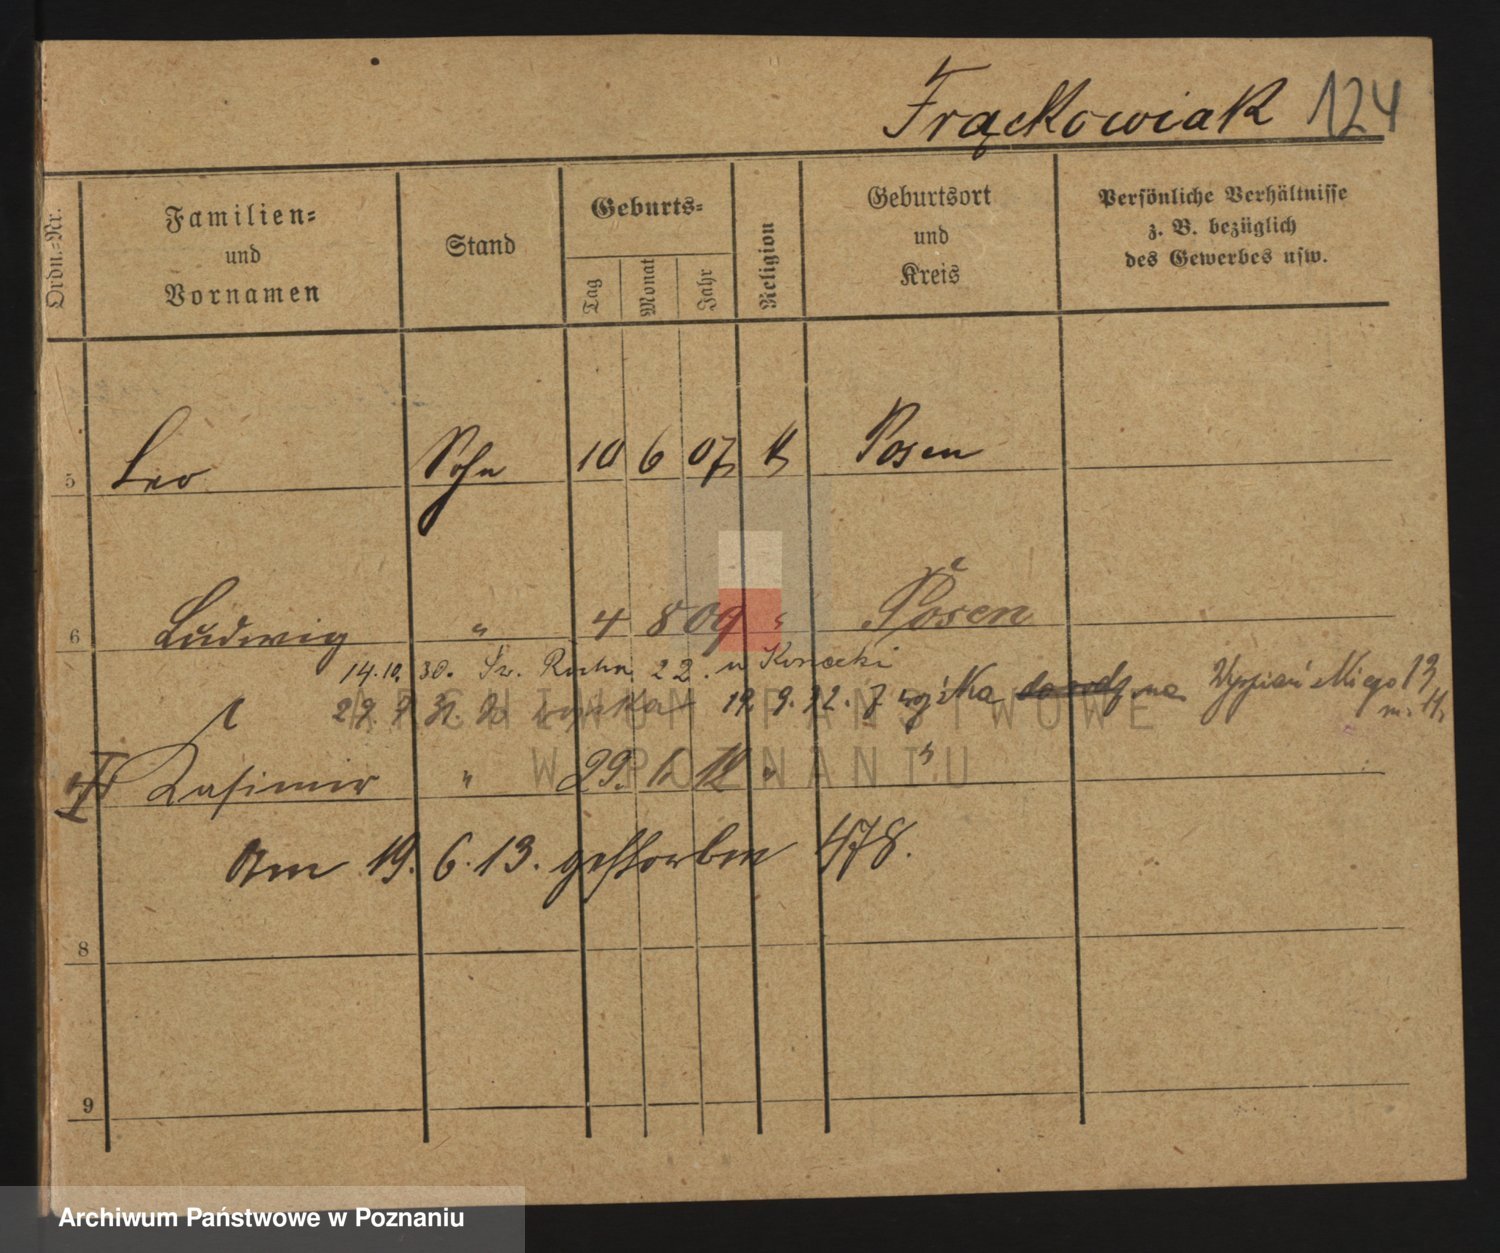 Frąckowiak 124
Ordn.=Nr.
Familien=
und
Vornamen
Stand
Geburts=
Tag
Monat
Jahr
Religion
Geburtsort
und
Kreis
Persönliche Verhältnisse
z. B. bezüglich
des Gewerbes usw.
5 Leo Sohn 10 6 07 k Posen
6 Ludwig " 4 8 09 " Posen
14.10. 30. Św. Rocha 22. u Konecki
do wojska 19. 9. 32. z wojska na Wyspiańskiego 13
m. 11.
Kasimir " 29. 1. 12 " "
Am 19. 6. 13. gestorben 478.
8
9
ARCHIWUM PAŃSTWOWE
W POZNANIU
Archiwum Państwowe w Poznaniu